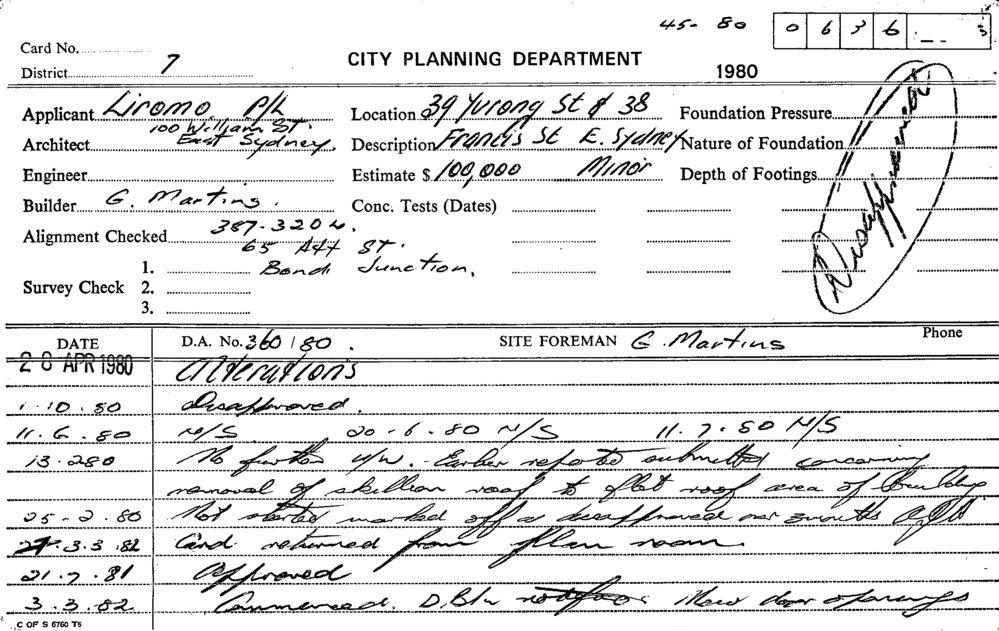 45- 80 0636
Card No.
District 7
CITY PLANNING DEPARTMENT
1980
Applicant Liromo P/L
100 William St.
East Sydney.
Architect
Engineer
Builder G. Martins.
Alignment Checked 387-3204.
65 St.
Bondi Junction.
Survey Check 1.
2.
3.
Location 39 Yurong St & 38
Description Francis St E. Sydney
Estimate $ 100,000 Minor
Conc. Tests (Dates)
Foundation Pressure
Nature of Foundation
Depth of Footings
Disapproved
DATE D.A. No. 360/80. SITE FOREMAN G. Martins Phone
28 APR 1980 Alterations
1.10.80 Disapproved.
11.6.80 N/S 20-6.80 N/S 11.7.80 N/S
13.2.80 No further Earlier submitted concerning
removal of skillion roof to flat roof area of building
25-2.80 Not started marked off disapproved over 3 months
3.3.82 Card returned from plan room.
21.7.81 Approved
3.3.82 Commenced. New door openings
C OF S 6760 T5